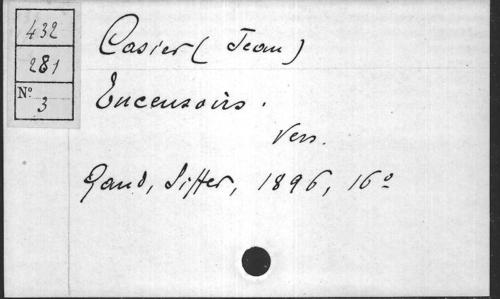 432
281
Nº 3
Casier (Jean)
Encensoirs.
Vers.
Gand, Siffer, 1896, 16º